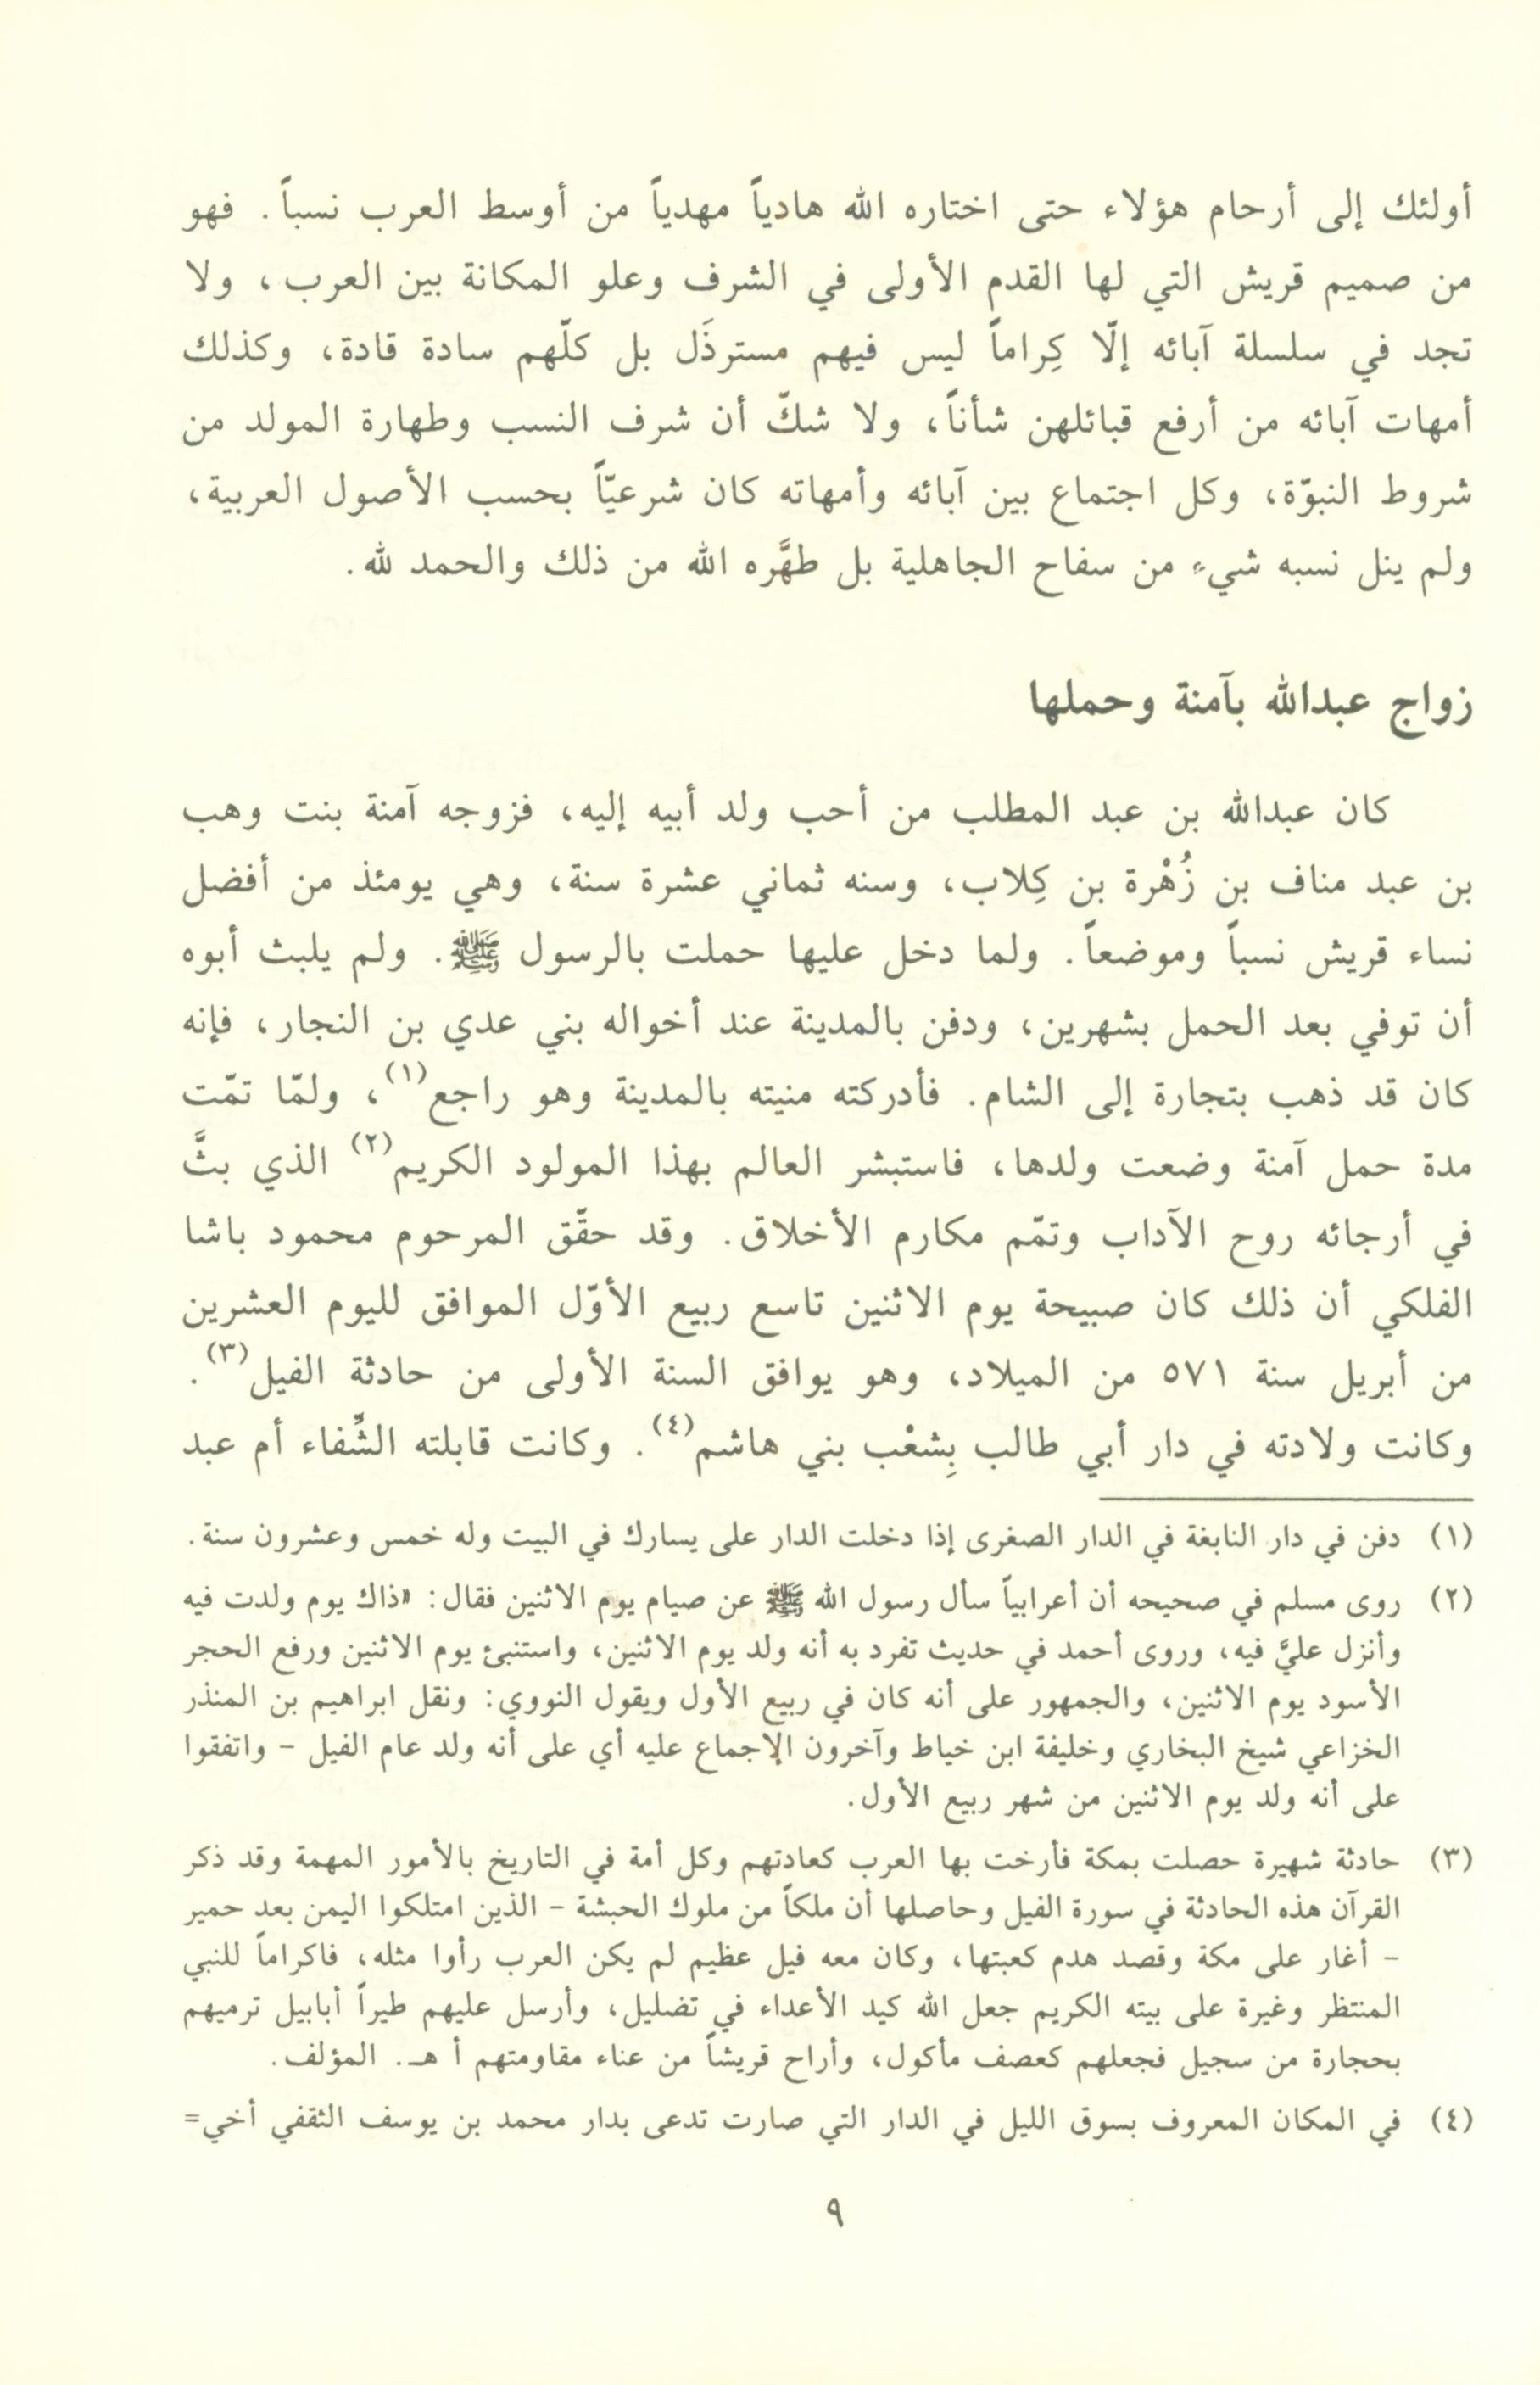 أولئك إلى أرحام هؤلاء حتى اختاره الله هادياً مهدياً من أوسط العرب نسباً. فهو
من صميم قريش التي لها القدم الأولى في الشرف وعلو المكانة بين العرب، ولا
تجد في سلسلة آبائه إلّا كِراماً ليس فيهم مسترذَل بل كلّهم سادة قادة، وكذلك
أمهات آبائه من أرفع قبائلهن شأناً، ولا شكّ أن شرف النسب وطهارة المولد من
شروط النبوّة، وكل اجتماع بين آبائه وأمهاته كان شرعيّاً بحسب الأصول العربية،
ولم ينل نسبه شيء من سفاح الجاهلية بل طهَّره الله من ذلك والحمد لله.
زواج عبدالله بآمنة وحملها
كان عبدالله بن عبد المطلب من أحب ولد أبيه إليه، فزوجه آمنة بنت وهب
بن عبد مناف بن زُهْرة بن كِلاب، وسنه ثماني عشرة سنة، وهي يومئذ من أفضل
نساء قريش نسباً وموضعاً. ولما دخل عليها حملت بالرسول ﷺ. ولم يلبث أبوه
أن توفي بعد الحمل بشهرين، ودفن بالمدينة عند أخواله بني عدي بن النجار، فإنه
كان قد ذهب بتجارة إلى الشام. فأدركته منيته بالمدينة وهو راجع(١)، ولمّا تمّت
مدة حمل آمنة وضعت ولدها، فاستبشر العالم بهذا المولود الكريم(٢) الذي بثَّ
في أرجائه روح الآداب وتمّم مكارم الأخلاق. وقد حقّق المرحوم محمود باشا
الفلكي أن ذلك كان صبيحة يوم الاثنين تاسع ربيع الأوّل الموافق لليوم العشرين
من أبريل سنة ٥٧١ من الميلاد، وهو يوافق السنة الأولى من حادثة الفيل(٣).
وكانت ولادته في دار أبي طالب بِشعْب بني هاشم(٤). وكانت قابلته الشِّفاء أم عبد
(١) دفن في دار النابغة في الدار الصغرى إذا دخلت الدار على يسارك في البيت وله خمس وعشرون سنة.
(٢) روى مسلم في صحيحه أن أعرابياً سأل رسول الله ﷺ عن صيام يوم الاثنين فقال: «ذاك يوم ولدت فيه
وأنزل عليَّ فيه، وروى أحمد في حديث تفرد به أنه ولد يوم الاثنين، واستنبئ يوم الاثنين ورفع الحجر
الأسود يوم الاثنين، والجمهور على أنه كان في ربيع الأول ويقول النووي: ونقل ابراهيم بن المنذر
الخزاعي شيخ البخاري وخليفة ابن خياط وآخرون الإجماع عليه أي على أنه ولد عام الفيل - واتفقوا
على أنه ولد يوم الاثنين من شهر ربيع الأول.
(٣) حادثة شهيرة حصلت بمكة فأرخت بها العرب كعادتهم وكل أمة في التاريخ بالأمور المهمة وقد ذكر
القرآن هذه الحادثة في سورة الفيل وحاصلها أن ملكاً من ملوك الحبشة - الذين امتلكوا اليمن بعد حمير
- أغار على مكة وقصد هدم كعبتها، وكان معه فيل عظيم لم يكن العرب رأوا مثله، فاكراماً للنبي
المنتظر وغيرة على بيته الكريم جعل الله كيد الأعداء في تضليل، وأرسل عليهم طيراً أبابيل ترميهم
بحجارة من سجيل فجعلهم كعصف مأكول، وأراح قريشاً من عناء مقاومتهم أ هـ. المؤلف.
(٤) في المكان المعروف بسوق الليل في الدار التي صارت تدعى بدار محمد بن يوسف الثقفي أخي=
٩